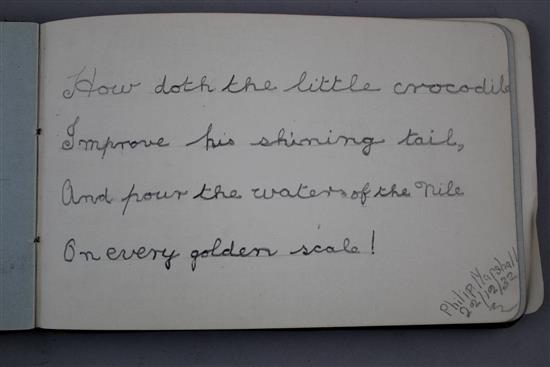 How doth the little crocodile
Improve his shining tail,
And pour the waters of the Nile
On every golden scale!
Philip Marshall
22/12/32